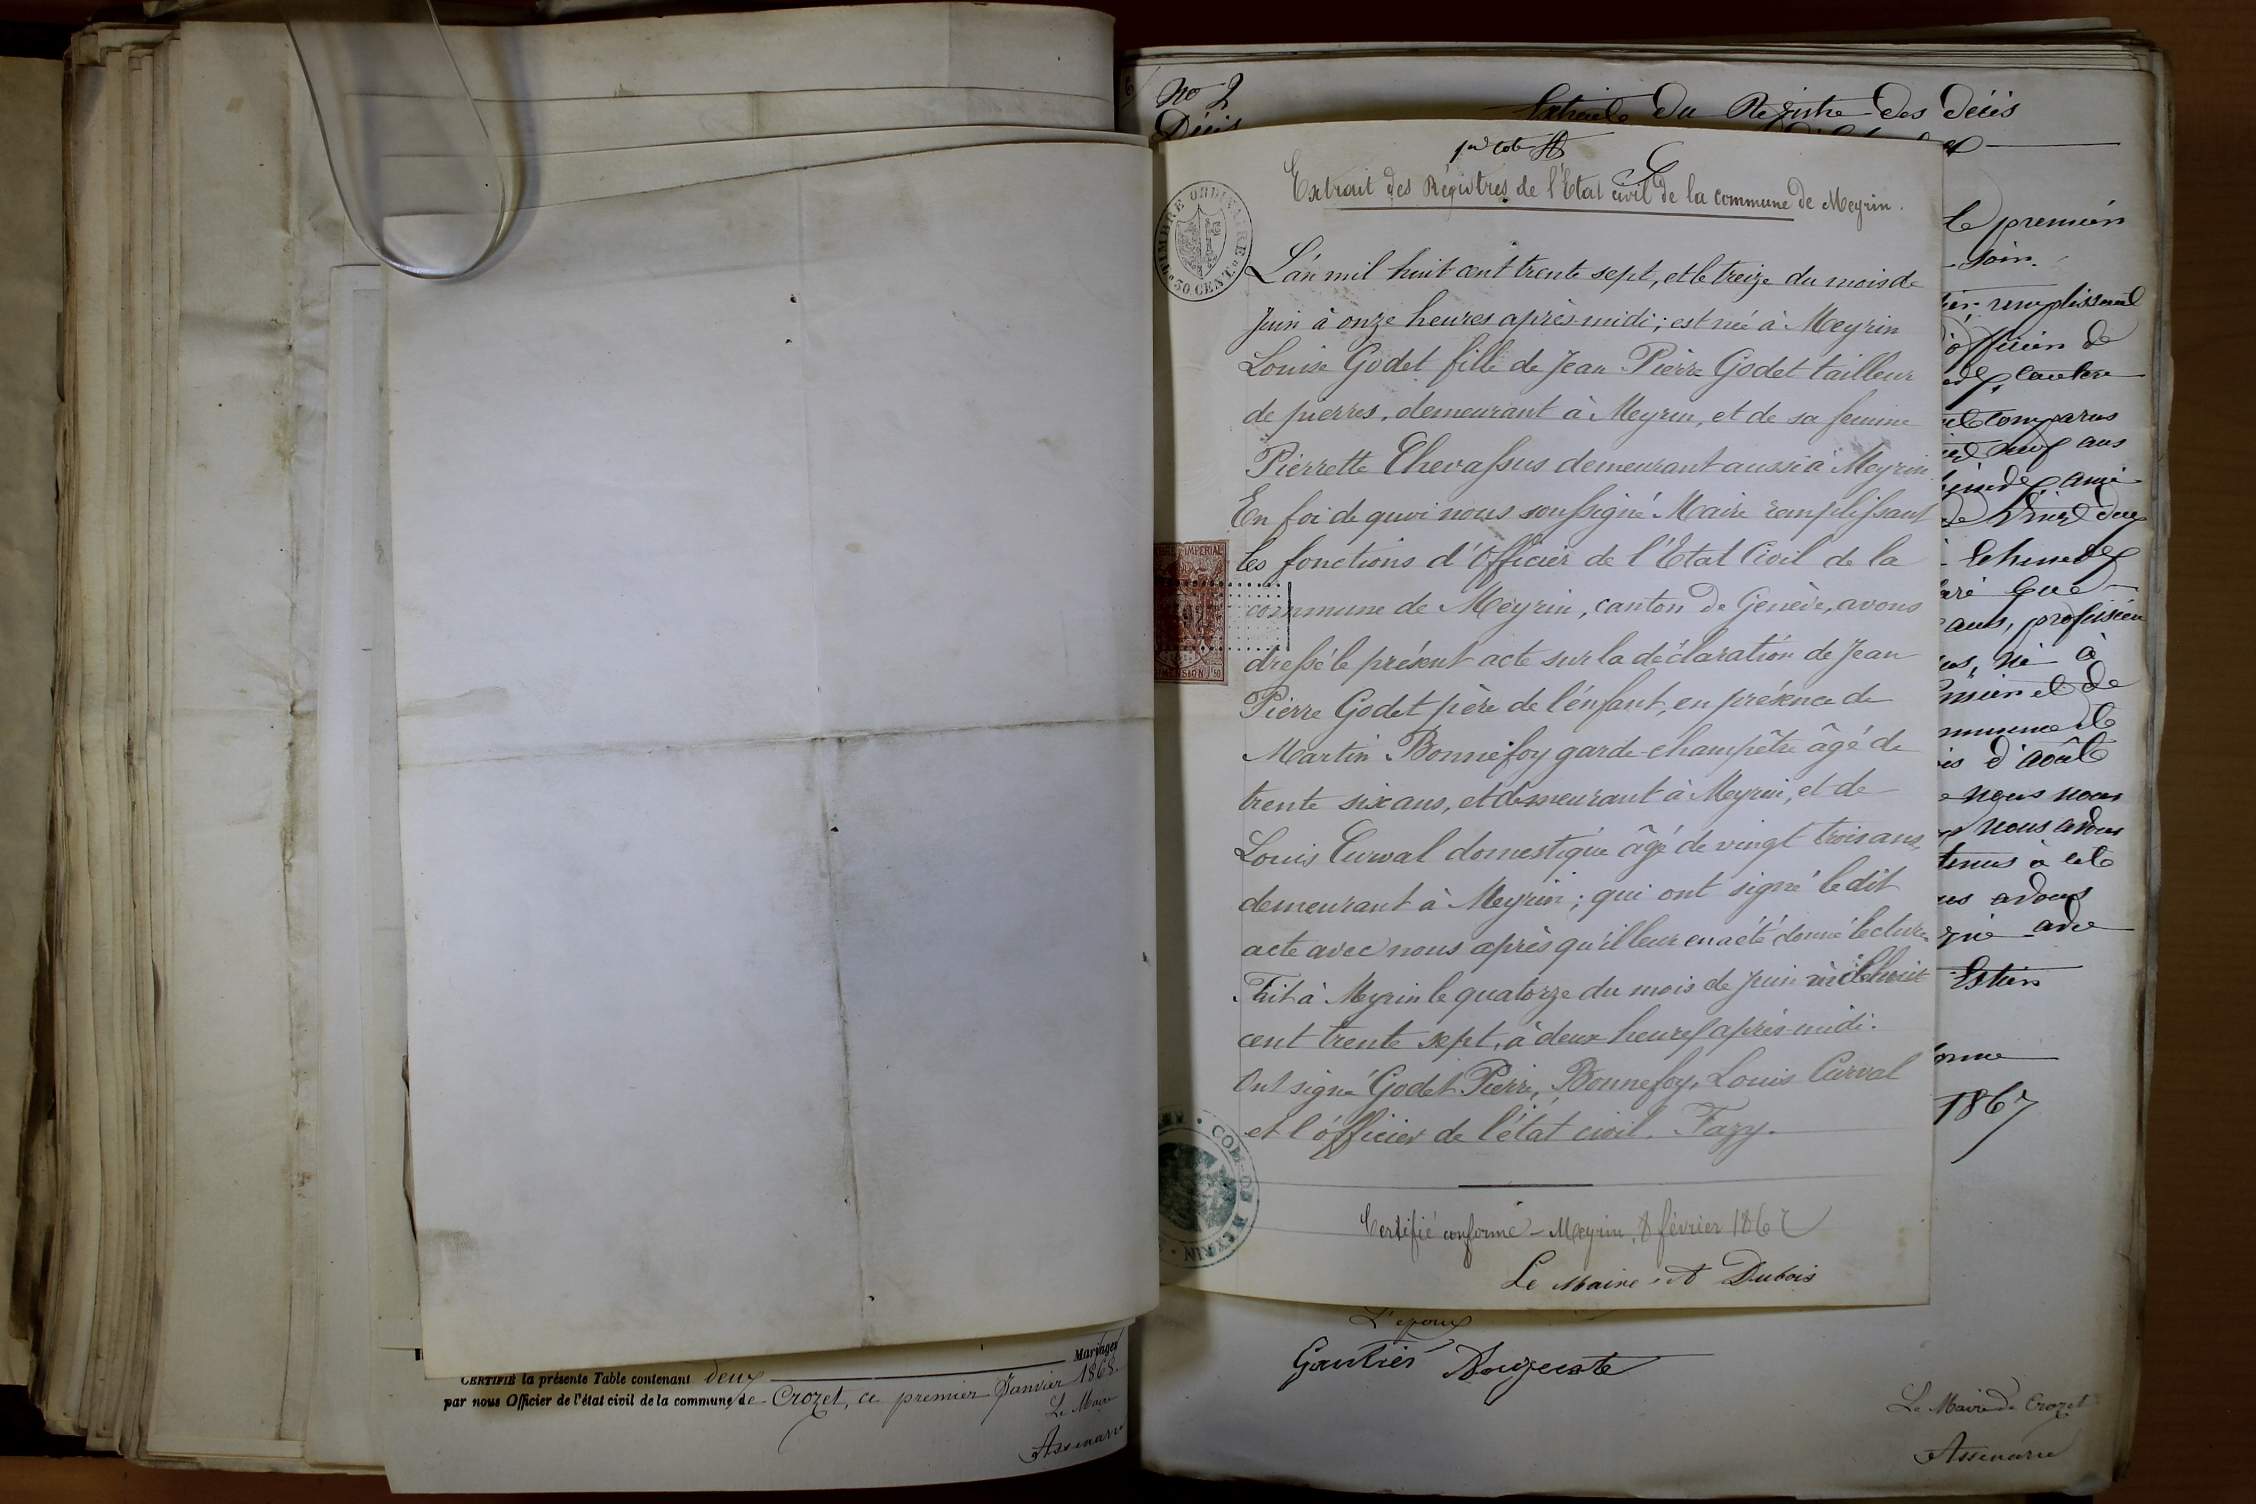 Mariages
CERTIFIÉ la présente Table contenant deux
par nous Officier de l'état civil de la commune de Crozet, ce premier Janvier 1868.
Le Maire
No 2
Décès
Extrait du Registre des Décès
Extrait des Régistres de l'Etat civil de la commune de Meyrin.
TIMBRE ORDINAIRE
50 CENT.
L'an mil huit cent trente sept, et le treize du mois de
Juin à onze heures après midi; est née à Meyrin
Louise Godet fille de Jean Pierre Godet tailleur
de pierres, demeurant à Meyrin, et de sa femme
Pierrette Chevassus demeurant aussi à Meyrin
En foi de quoi nous soussigné Maire remplissant
les fonctions d'Officier de l'Etat Civil de la
commune de Meyrin, canton de Genève, avons
dressé le présent acte sur la déclaration de Jean
Pierre Godet père de l'enfant, en présence de
Martin Bonnefoy garde-champêtre âgé de
trente six ans, et demeurant à Meyrin, et de
Louis Curval domestique âgé de vingt trois ans,
demeurant à Meyrin; qui ont signé le dit
acte avec nous après qu'il leur en a été donné lecture.
Fait à Meyrin le quatorze du mois de Juin mil huit
cent trente sept, à deux heures après-midi.
Ont signé Godet Pierre, Bonnefoy, Louis Curval
et l'officier de l'état civil. Fazy.
Certifié conforme - Meyrin, 8 février 1867
Le Maire A Dubois
IMPERIAL
COM. DE MEYRIN
le premier
remplissant
officier de
comparus
neuf ans
que
ans, profession
né à
et de
d'août
nous nous
nous avons
à cet
avons
1867
L'époux
Le Maire de Crozet